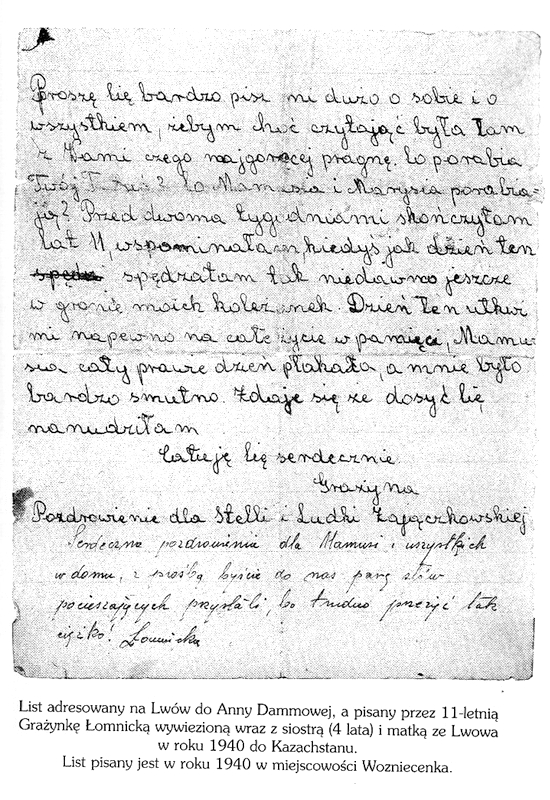 Proszę Cię bardzo pisz mi dużo o sobie i o
wszystkiem, żebym choć czytając była tam
z Wami czego najgoręcej pragnę. Co porabia
Twój Tatuś? Co Mamusia i Marysia porabia-
ją? Przed dwoma tygodniami skończyłam
lat 11, wspominałam, kiedyś jak dzień ten
spędzałam tak niedawno jeszcze
w gronie moich koleżanek. Dzień ten utkwi
mi napewno na całe życie w pamięci, Mamu-
sia cały prawie dzień płakała, a mnie było
bardzo smutno. Zdaje się że dosyć Cię
nanudziłam
Całuję Cię serdecznie
Grażyna
Pozdrowienie dla Stelli i Ludki Zajączkowskiej
Serdeczne pozdrowienia dla Mamusi i wszystkich
w domu, z prośbą byście do nas parę słów
pocieszających przysłali, bo trudno przeżyć tak
ciężko! Łomnicka
List adresowany na Lwów do Anny Dammowej, a pisany przez 11-letnią
Grażynkę Łomnicką wywiezioną wraz z siostrą (4 lata) i matką ze Lwowa
w roku 1940 do Kazachstanu.
List pisany jest w roku 1940 w miejscowości Wozniecenka.